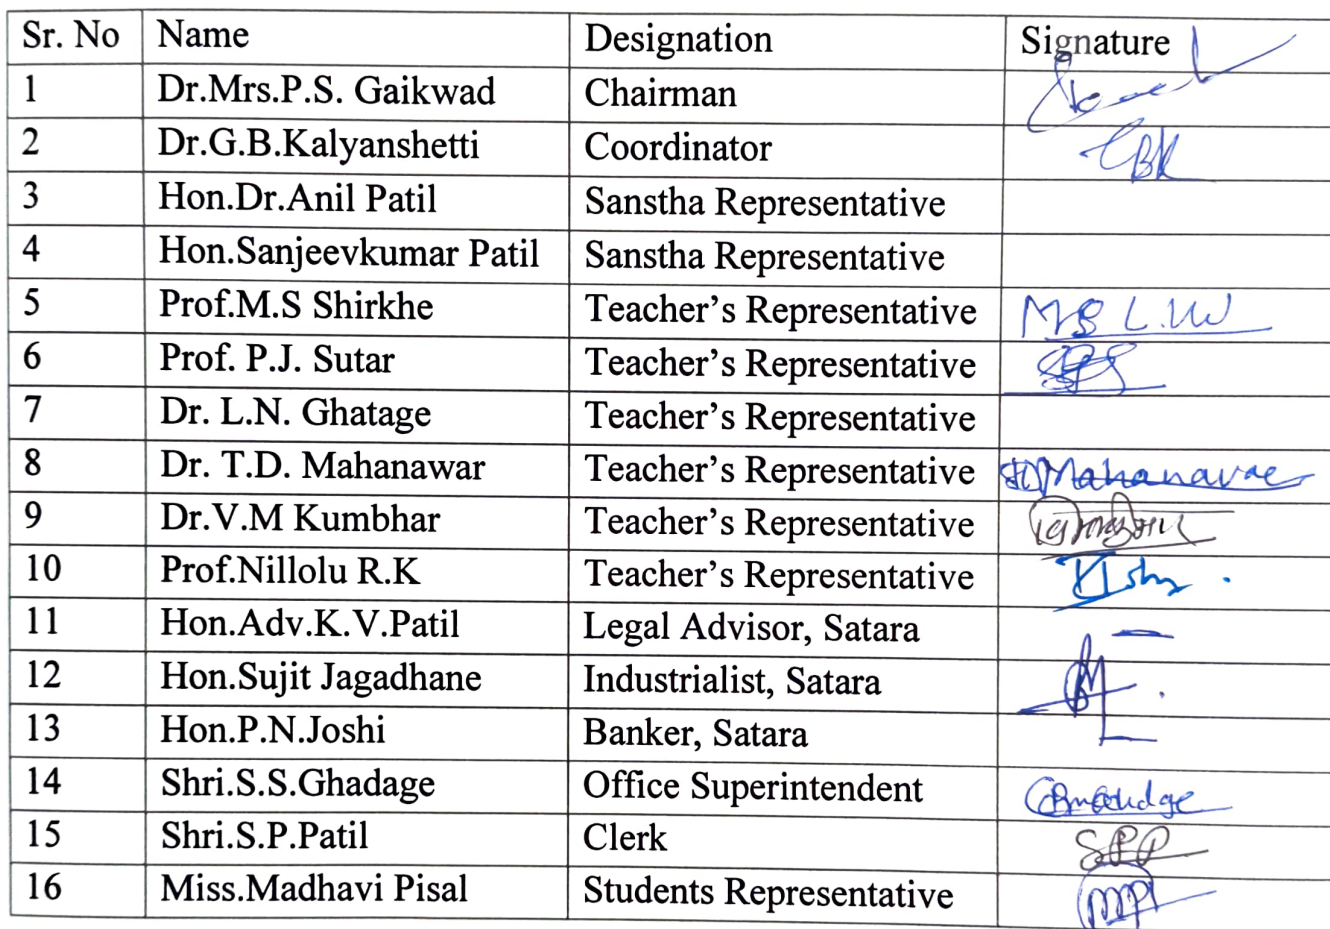 Sr. No Name Designation Signature
1 Dr.Mrs.P.S. Gaikwad Chairman
2 Dr.G.B.Kalyanshetti Coordinator GBK
3 Hon.Dr.Anil Patil Sanstha Representative
4 Hon.Sanjeevkumar Patil Sanstha Representative
5 Prof.M.S Shirkhe Teacher's Representative
6 Prof. P.J. Sutar Teacher's Representative
7 Dr. L.N. Ghatage Teacher's Representative
8 Dr. T.D. Mahanawar Teacher's Representative Mahanavar
9 Dr.V.M Kumbhar Teacher's Representative
10 Prof.Nillolu R.K Teacher's Representative
11 Hon.Adv.K.V.Patil Legal Advisor, Satara
12 Hon.Sujit Jagadhane Industrialist, Satara
13 Hon.P.N.Joshi Banker, Satara
14 Shri.S.S.Ghadage Office Superintendent
15 Shri.S.P.Patil Clerk SPP
16 Miss.Madhavi Pisal Students Representative MP